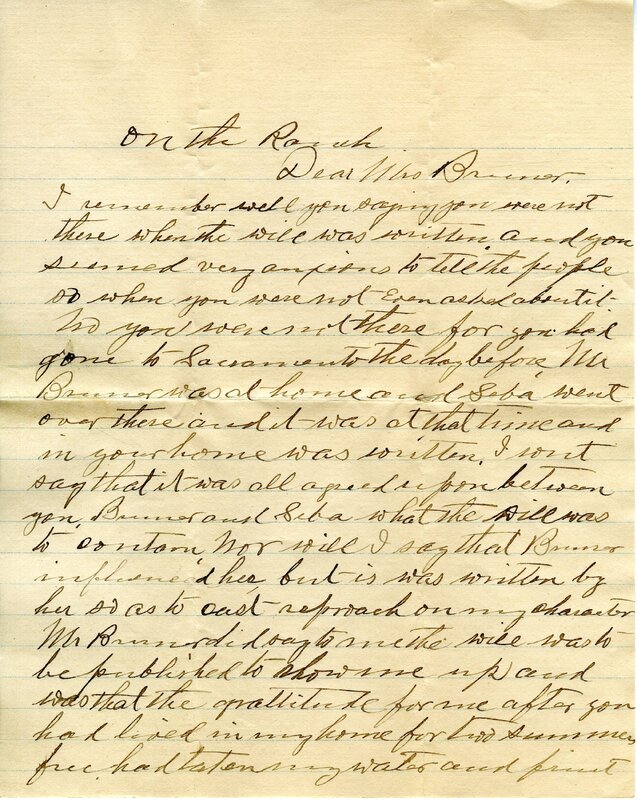 On the Ranch
Dear Mrs Bruner.
I remember well you saying you were not
there when the will was written, and you
seemed very anxious to tell the people
so when you were not Even asked about it
No you were not there for you had
gone to Sacramento the day before, Mr
Bruner was at home and Seba, went
over there and it was at that time and
in your home was written. I wont
say that it was all agreed upon between
you, Bruner and Seba what the will was
to contain, Nor will I say that Bruner
influenced her, but is was written by
her so as to cast reproach on my character
Mr Bruner did say to me the will was to
be published to show me up and
was that the grattitude for me after you
had lived in my home for two summers
free, had taken my water and fruit